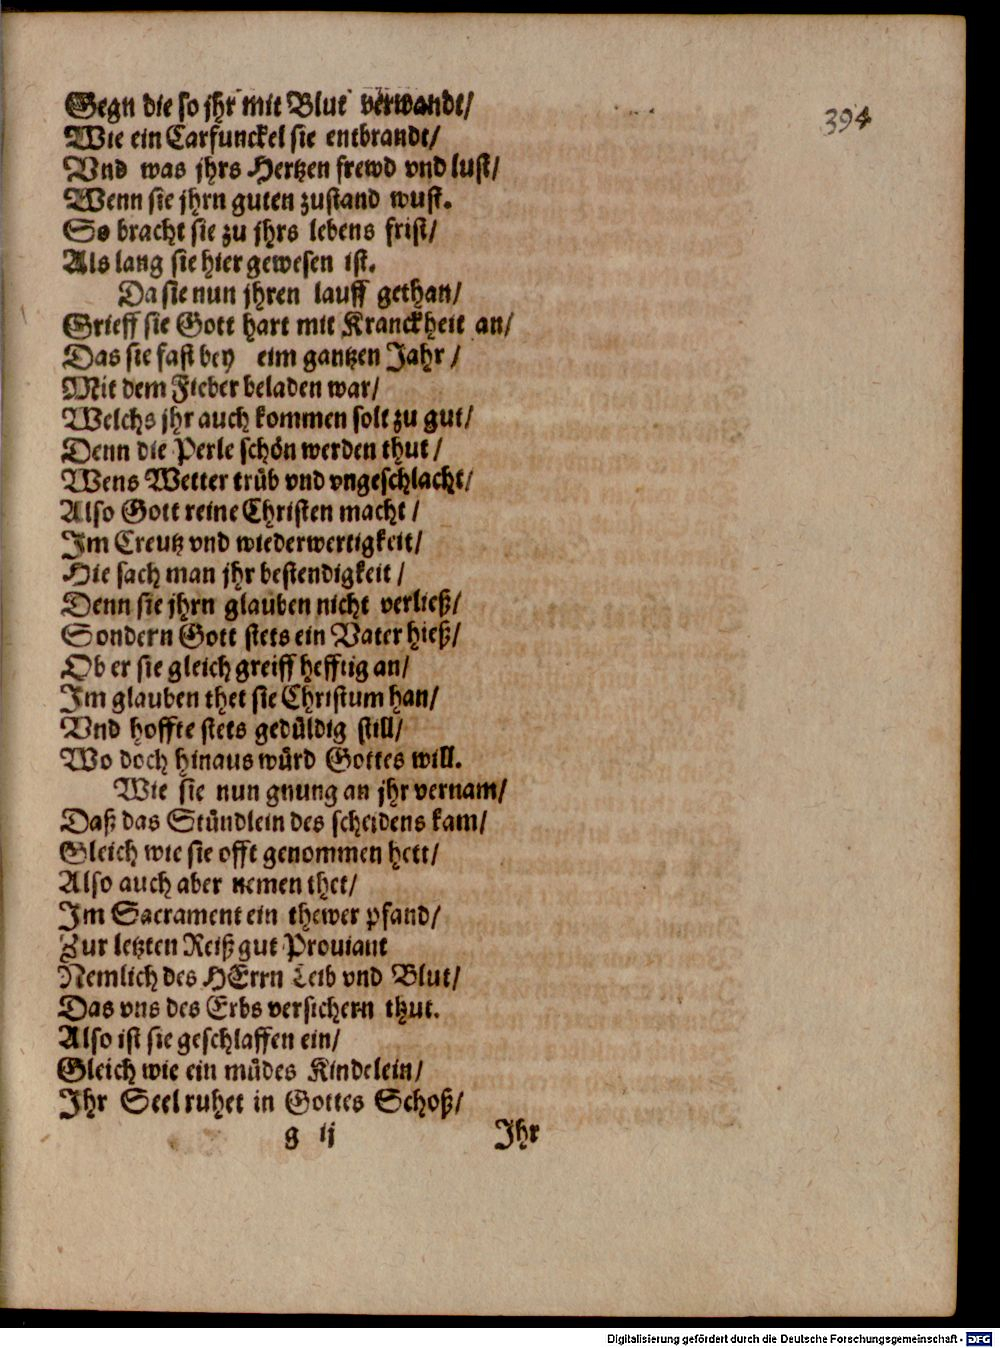 Gegn die so jhr mit Blut verwandt/
394
Wie ein Carfunckel sie entbrandt/
Vnd was jhrs Hertzen frewd vnd lust/
Wenn sie jhrn guten zustand wust.
So bracht sie zu jhrs lebens frist/
Als lang sie hier gewesen ist.
Da sie nun jhren lauff gethan/
Grieff sie Gott hart mit Kranckheit an/
Das sie fast bey eim gantzen Jahr/
Mit dem Fieber beladen war/
Welchs jhr auch kommen solt zu gut/
Denn die Perle schön werden thut/
Wens Wetter trüb vnd vngeschlacht/
Also Gott reine Christen macht/
Im Creutz vnd wiederwertigkeit/
Hie sach man jhr bestendigkeit/
Denn sie jhrn glauben nicht verließ/
Sondern Gott stets ein Vater hieß/
Ob er sie gleich greiff hefftig an/
Im glauben thet sie Christum han/
Vnd hoffte stets gedüldig still/
Wo doch hinaus würd Gottes will.
Wie sie nun gnung an jhr vernam/
Daß das Stündlein des scheidens kam/
Gleich wie sie offt genommen hett/
Also auch aber nemen thet/
Im Sacrament ein thewer pfand/
Zur letzten Reiß gut Prouiant
Nemlich des HErrn Leib vnd Blut/
Das vns des Erbs versichern thut.
Also ist sie geschlaffen ein/
Gleich wie ein müdes Kindelein/
Ihr Seel ruhet in Gottes Schoß/
g ij Ihr
Digitalisierung gefördert durch die Deutsche Forschungsgemeinschaft - DFG